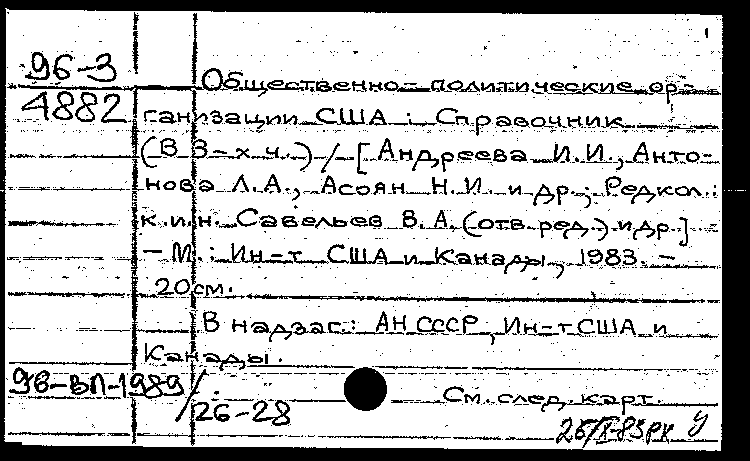 96-3
4882
Общественно-политические ор-
ганизации США : Справочник
(В 3-х ч.) / [Андреева И.И., Анто-
нова Л.А., Асоян Н.И. и др.; Редкол.:
к.и.н. Савельев В.А. (отв. ред.) и др.]
- М.: Ин-т США и Канады, 1983. -
20см.
В надзаг.: АН СССР, Ин-т США и
Канады.
96-ВЛ-1989/26-28
См. след. карт.